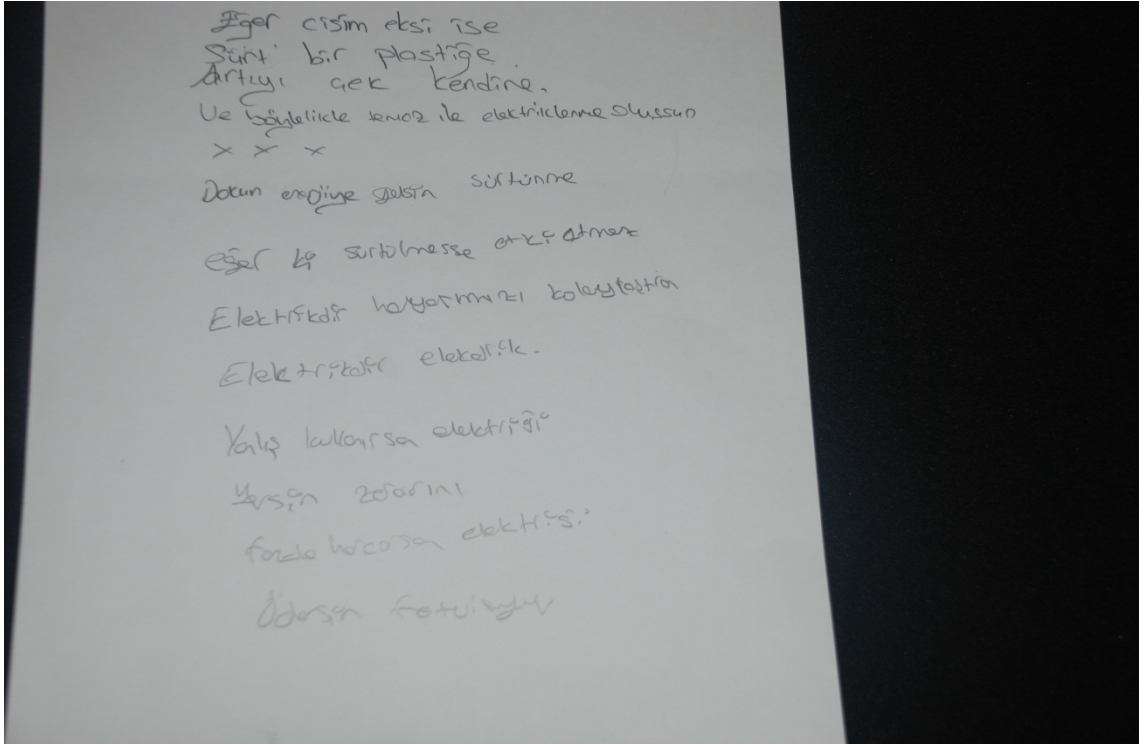 Eger cisim eksi ise
Sürt bir plastiğe.
Artıyı çek kendine.
Ve böylelikle temaz ile elektriklenme olussun
x x x
Dokun enerjiye gelsin sürtünme
eğer ki sürtülmesse etki etmez
Elektrikdir hayatımızı kolaylaştıran
Elektrikdir elekdrik.
Yalış kullanırsa elektriği
Yersin zararını
fazla harcarsan elektriği
Ödersin faturayı